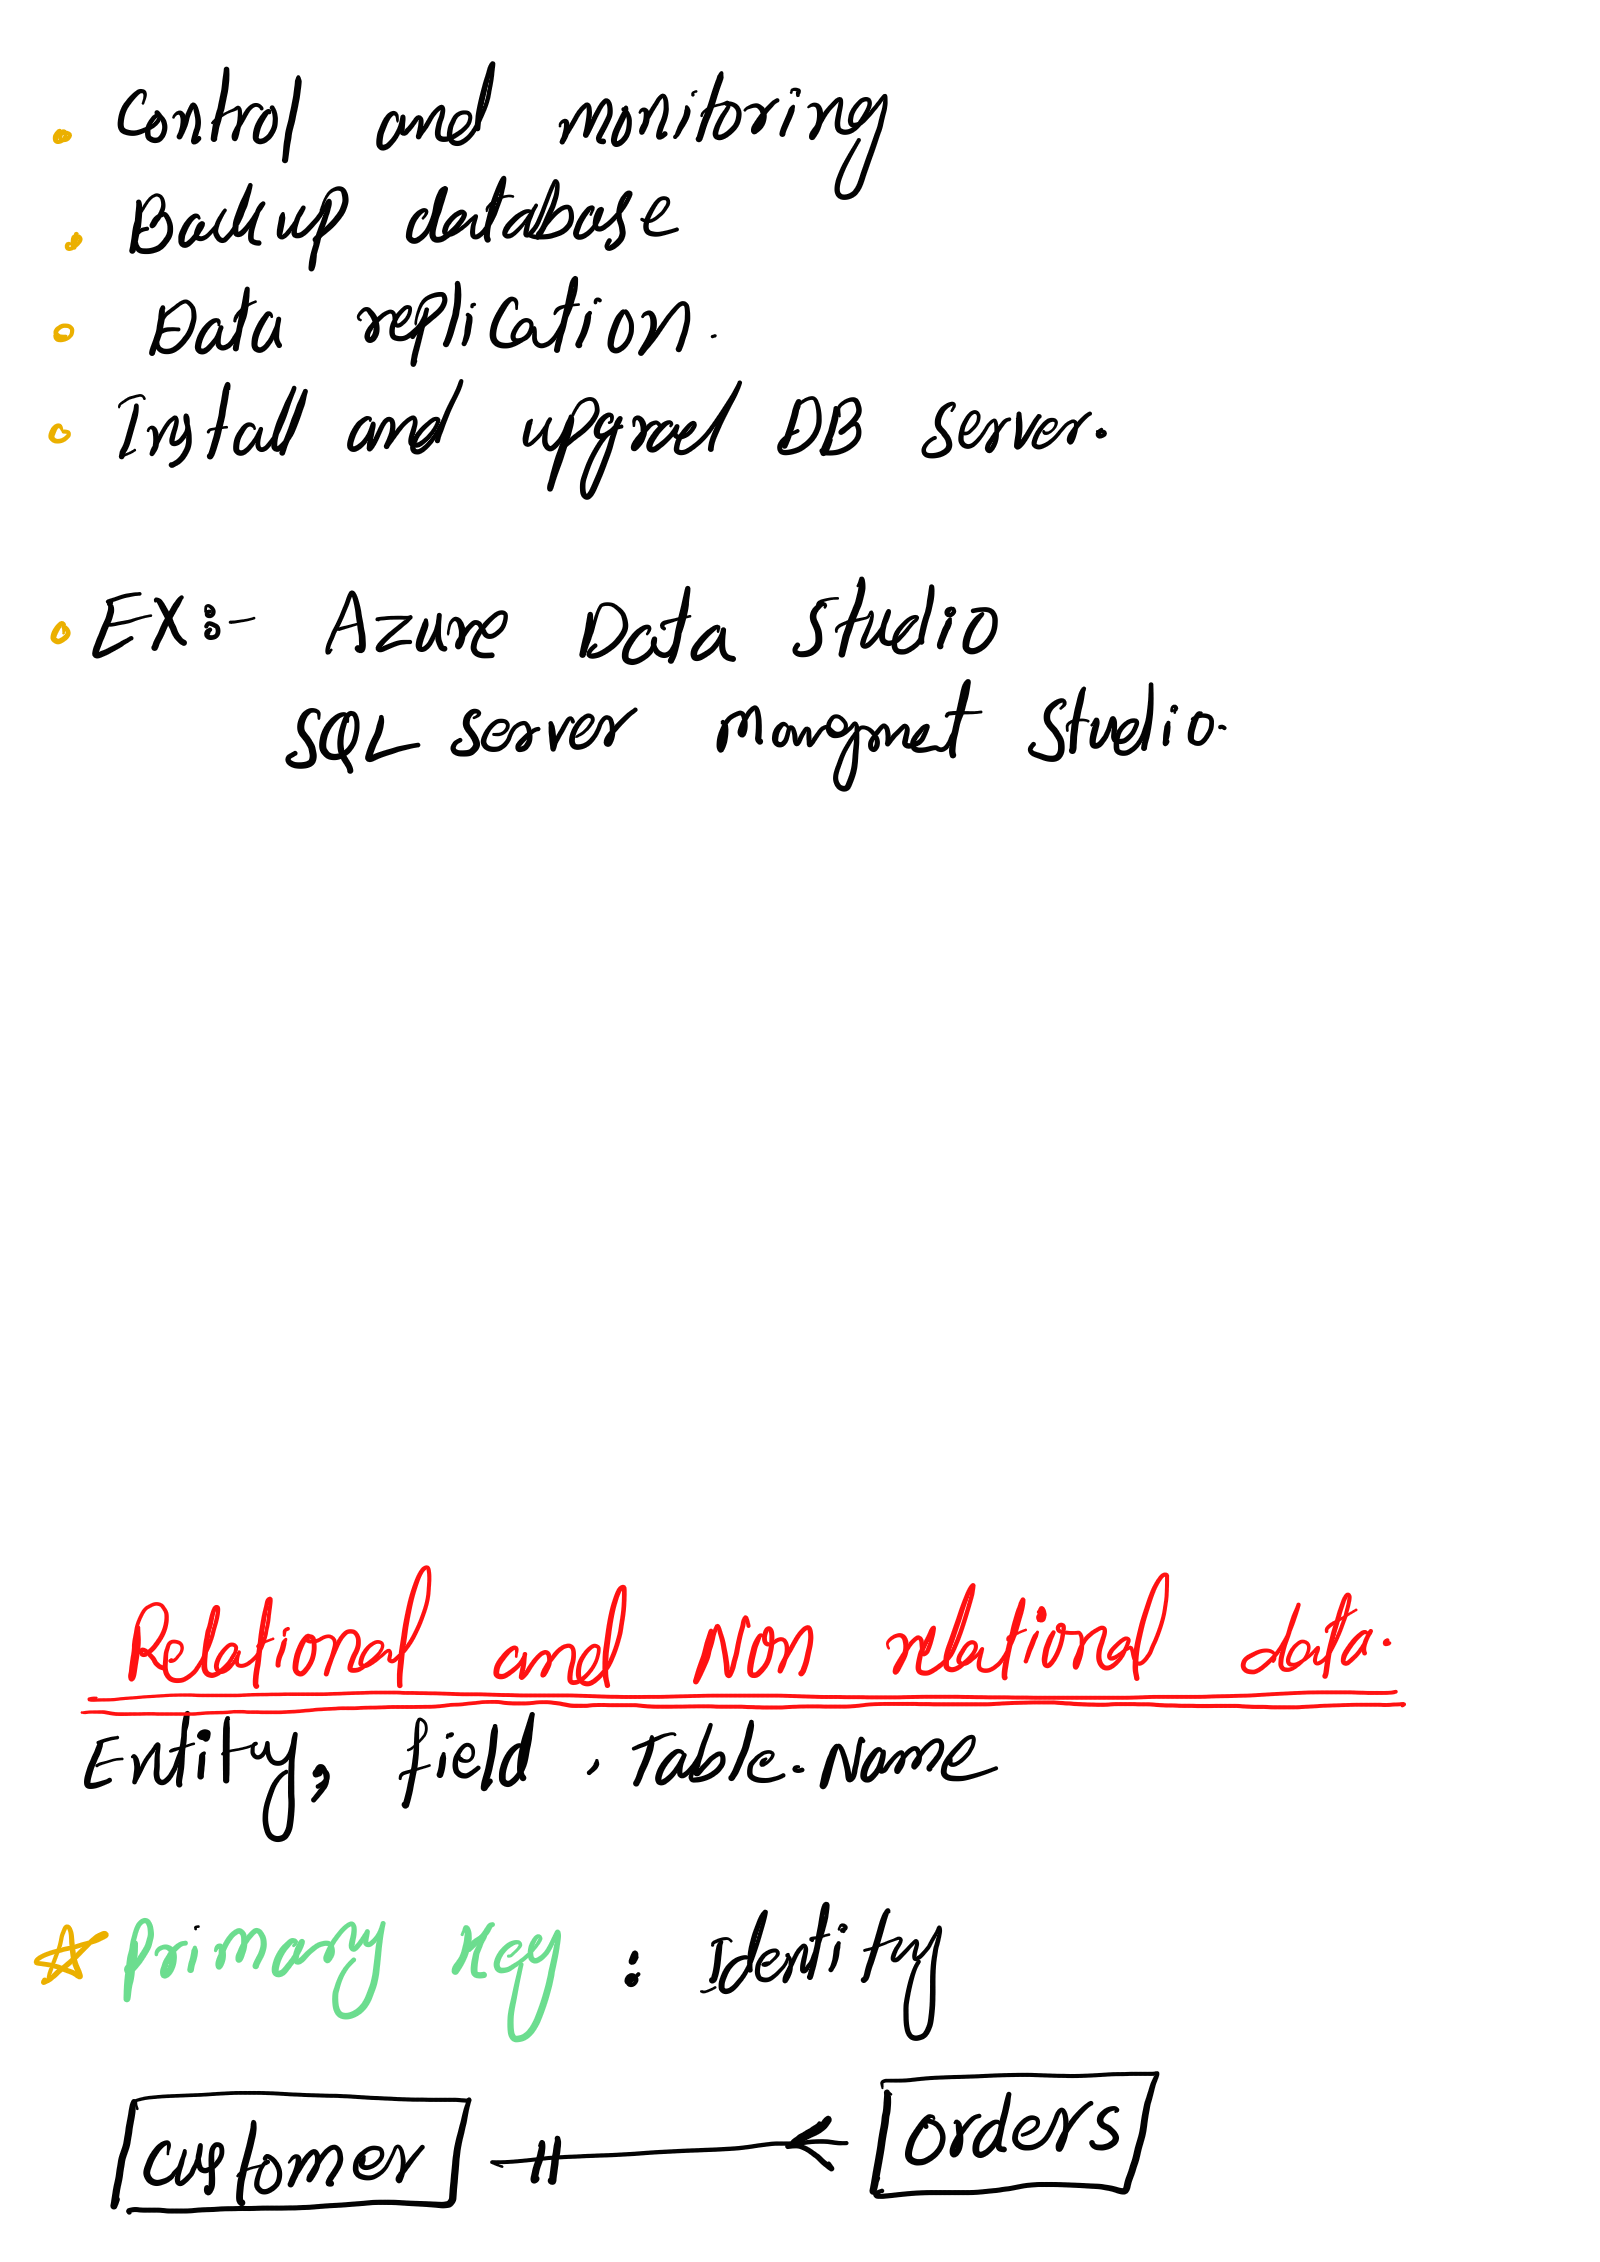 Control and monitoring
Backup database
Data replication.
Install and upgrad DB server.
EX:- Azure Data Studio
SQL Server Mangmet Studio.
Relational and Non relational data.
Entity, field, Table-Name
Primary Key : Identity
customer orders